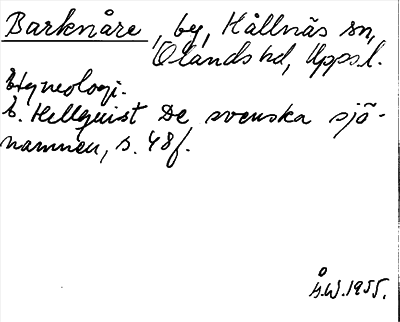 Barknåre, by, Hållnäs sn,
Olands hd, Uppsl.
Etymologi.
E. Hellquist De svenska sjö-
namnen, s. 48f.
Å.W. 1955.